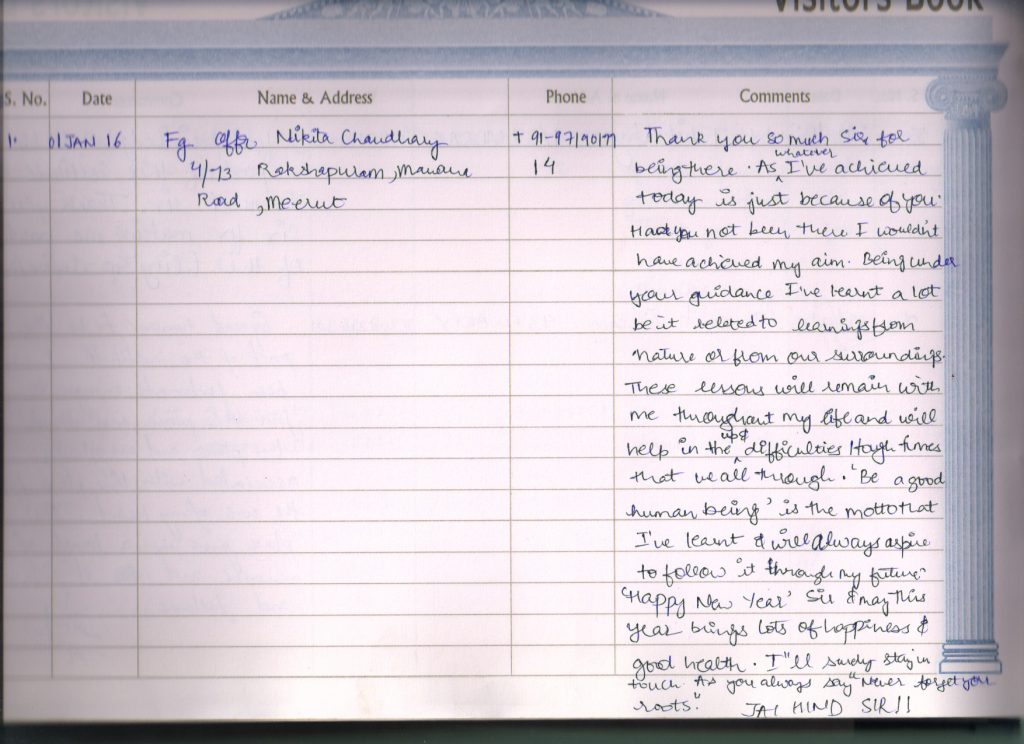 VISITORS BOOK
S. No. Date Name & Address Phone Comments
1. 01 JAN 16 Fg offr Nikita Chaudhary +91-97190177 Thank you so much Sir for
4/73 Rakshapuram, Mawana 14 being there. As whatever I've achieved
Road, Meerut today is just because of you.
Had you not been there I wouldn't
have achieved my aim. Being under
your guidance I've learnt a lot
be it related to learnings from
nature or from our surroundings.
These lessons will remain with
me throughout my life and will
help in the up & difficulties / tough times
that we all through. 'Be a good
human being' is the motto that
I've learnt & will always aspire
to follow it through my future.
'Happy New Year' Sir & may this
year brings lots of happiness &
good health. I"ll surely stay in
touch. As you always say "Never forget you
roots." JAI HIND SIR!!